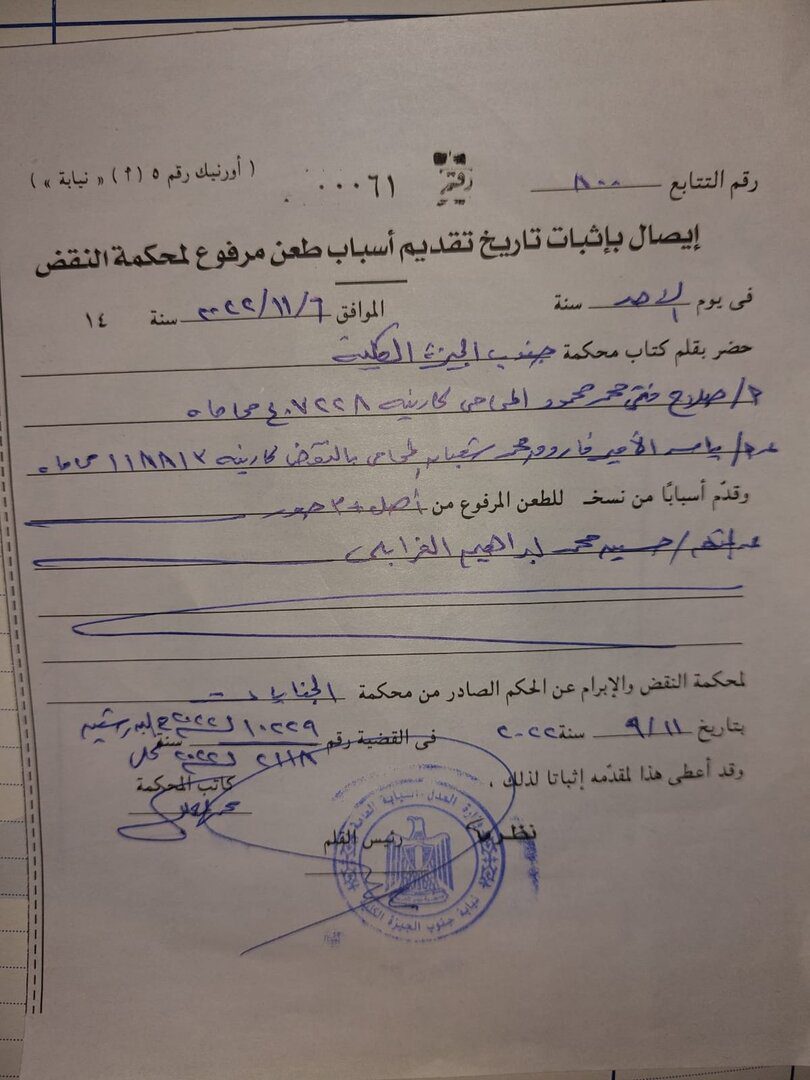 ( أورنيك رقم ٥ (أ) « نيابة » )
رقم التتابع ١٨٠٠ رقم ٠٠٠٠٦١
إيصال بإثبات تاريخ تقديم أسباب طعن مرفوع لمحكمة النقض
فى يوم الاحد سنة الموافق ٢٠٢٢/١١/٦ سنة ١٤
حضر بقلم كتاب محكمة جنوب الجيزة الكلية
أ/ صلاح محمد محمود المحامى كارنيه ٤٠٧٢٢٨ محاماه
عن أ/ ياسر الأمير فاروق محمد شعبان المحامى بالنقض كارنيه ١١٨٨١٣ محاماه
وقدّم أسبابًا من نسخـ للطعن المرفوع من أصل + ٣ صور
عن المتهم / حسين محمد ابراهيم الغرابلى
لمحكمة النقض والإبرام عن الحكم الصادر من محكمة الجنايات
بتاريخ ٩/١١ سنة ٢٠٢٢ فى القضية رقم ١٠٢٢٩ سنة ٢٠٢٢
٢١١٨ ل ٢٠٢٢ كلى
وقد أعطى هذا لمقدّمه إثباتا لذلك ،
كاتب المحكمة
نظر
رئيس القلم
وزارة العدل - النيابة العامة
نيابة جنوب الجيزة الكلية